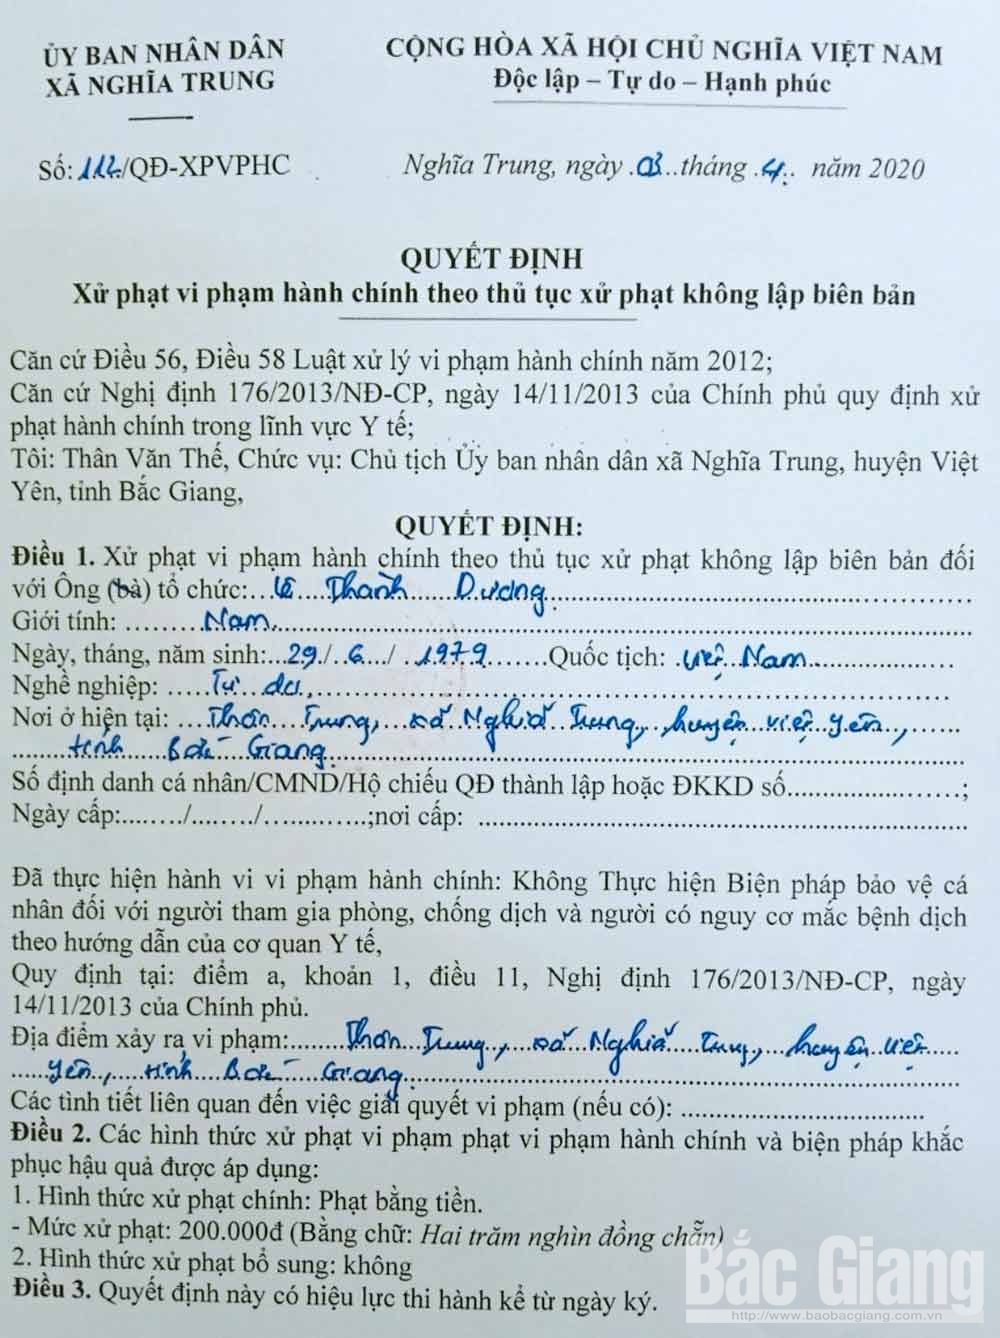 ỦY BAN NHÂN DÂN
XÃ NGHĨA TRUNG
CỘNG HÒA XÃ HỘI CHỦ NGHĨA VIỆT NAM
Độc lập – Tự do – Hạnh phúc
Số: 112/QĐ-XPVPHC
Nghĩa Trung, ngày .03..tháng .4.. năm 2020
QUYẾT ĐỊNH
Xử phạt vi phạm hành chính theo thủ tục xử phạt không lập biên bản
Căn cứ Điều 56, Điều 58 Luật xử lý vi phạm hành chính năm 2012;
Căn cứ Nghị định 176/2013/NĐ-CP, ngày 14/11/2013 của Chính phủ quy định xử
phạt hành chính trong lĩnh vực Y tế;
Tôi: Thân Văn Thế, Chức vụ: Chủ tịch Ủy ban nhân dân xã Nghĩa Trung, huyện Việt
Yên, tỉnh Bắc Giang,
QUYẾT ĐỊNH:
Điều 1. Xử phạt vi phạm hành chính theo thủ tục xử phạt không lập biên bản đối
với Ông (bà) tổ chức: Lê Thành Dương
Giới tính: Nam
Ngày, tháng, năm sinh: 29/6/1979 Quốc tịch: Việt Nam
Nghề nghiệp: Tự do,
Nơi ở hiện tại: Thôn Trung, xã Nghĩa Trung, huyện Việt Yên,
tỉnh Bắc Giang
Số định danh cá nhân/CMND/Hộ chiếu QĐ thành lập hoặc ĐKKD số...................;
Ngày cấp:......../......../...............;nơi cấp: ..........................................
Đã thực hiện hành vi vi phạm hành chính: Không Thực hiện Biện pháp bảo vệ cá
nhân đối với người tham gia phòng, chống dịch và người có nguy cơ mắc bệnh dịch
theo hướng dẫn của cơ quan Y tế,
Quy định tại: điểm a, khoản 1, điều 11, Nghị định 176/2013/NĐ-CP, ngày
14/11/2013 của Chính phủ.
Địa điểm xảy ra vi phạm: Thôn Trung, xã Nghĩa Trung, huyện Việt
Yên, tỉnh Bắc Giang
Các tình tiết liên quan đến việc giải quyết vi phạm (nếu có): ..............................
Điều 2. Các hình thức xử phạt vi phạm phạt vi phạm hành chính và biện pháp khắc
phục hậu quả được áp dụng:
1. Hình thức xử phạt chính: Phạt bằng tiền.
- Mức xử phạt: 200.000đ (Bằng chữ: Hai trăm nghìn đồng chẵn)
2. Hình thức xử phạt bổ sung: không
Điều 3. Quyết định này có hiệu lực thi hành kể từ ngày ký.
Bắc Giang
http://www.baobacgiang.com.vn